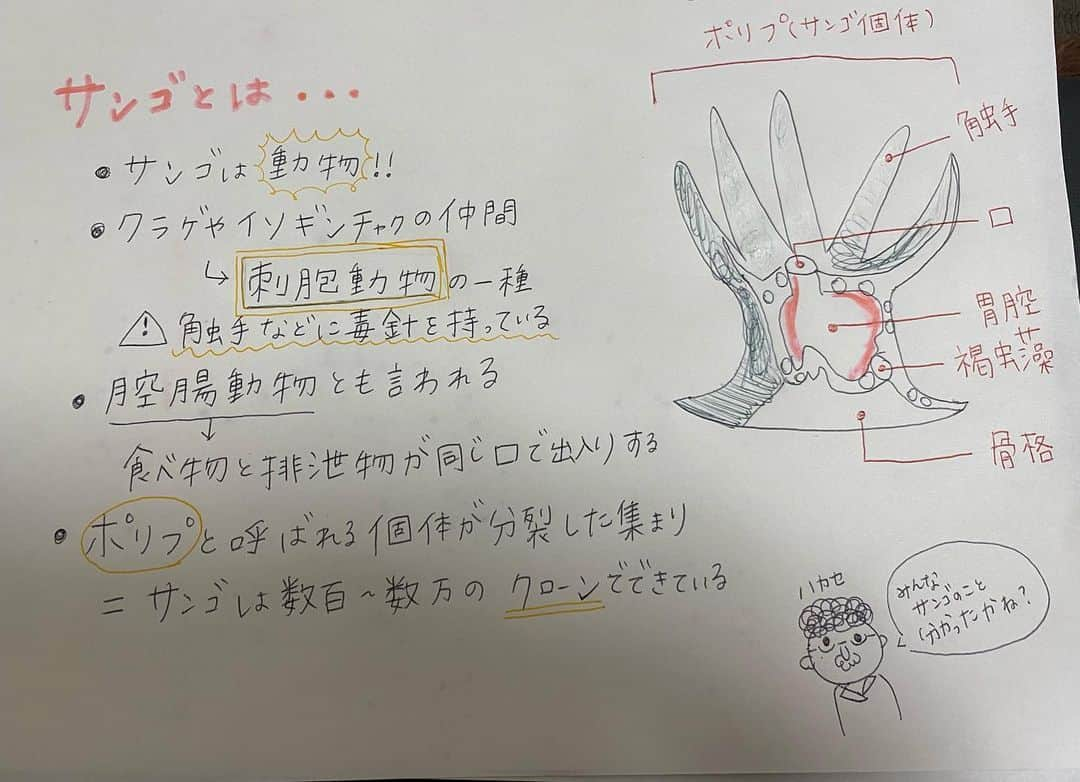 サンゴとは・・・
• サンゴは動物!!
• クラゲやイソギンチャクの仲間
↳ 刺胞動物の一種
⚠ 角虫手などに毒針を持っている
• 腔腸動物とも言われる
↓
食べ物と排泄物が同じ口で出入りする
• ポリプと呼ばれる個体が分裂した集まり
= サンゴは数百~数万のクローンでできている
ポリプ(サンゴ個体)
触手
口
胃腔
褐虫藻
骨格
ハカセ
みんな
サンゴのこと
分かったかね?